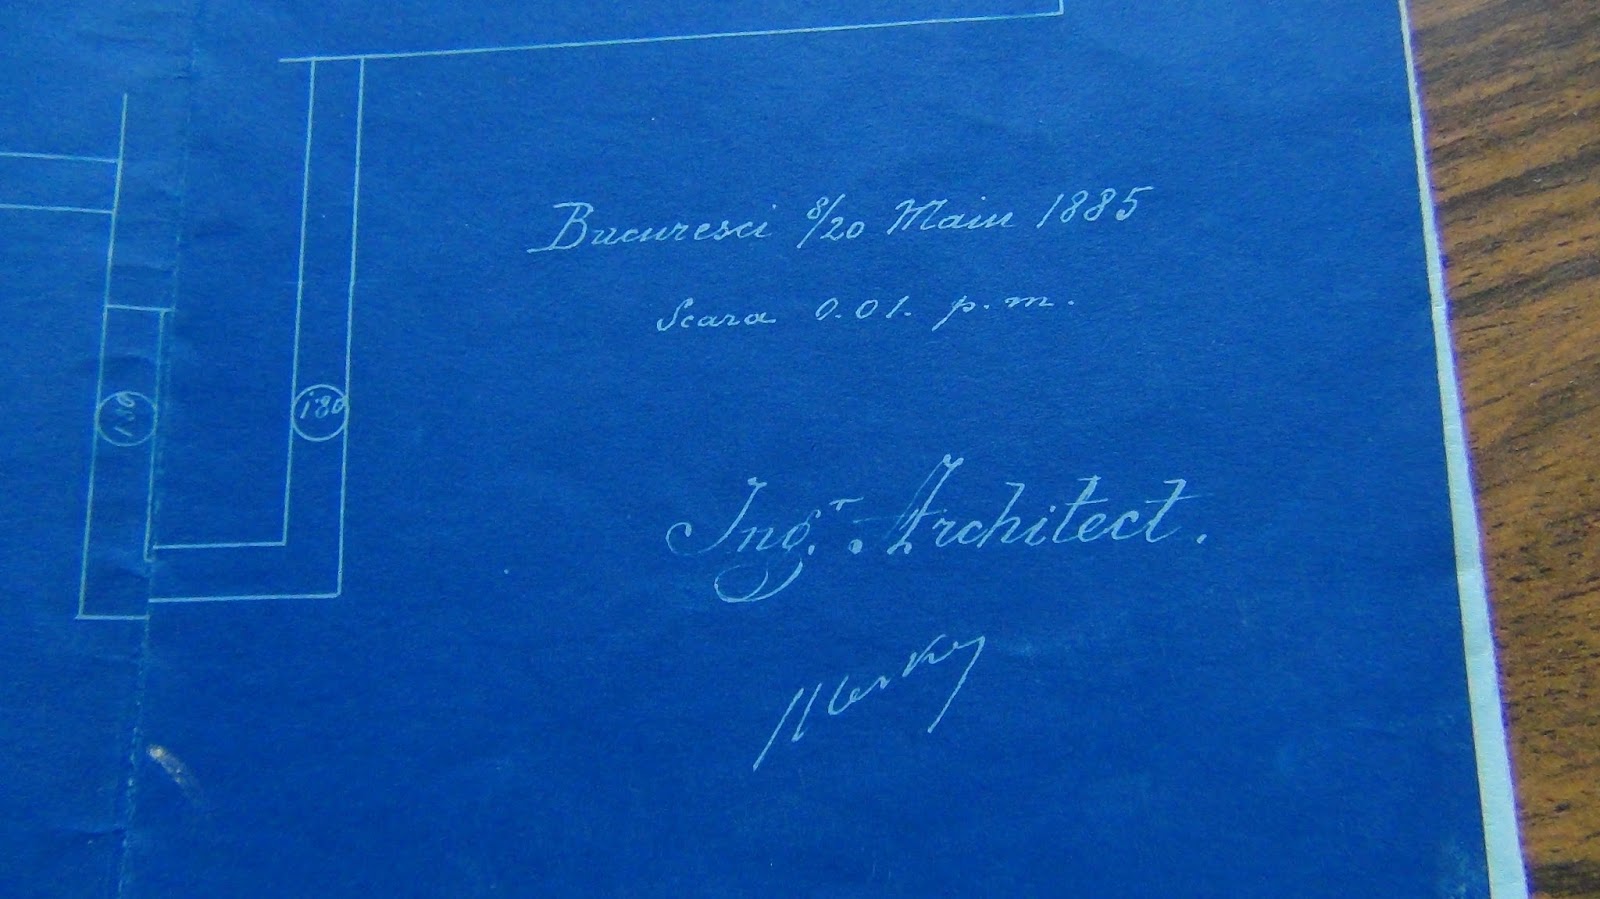 Bucuresci 8/20 Maiu 1885
Scara 0.01. p.m.
Ing.r Architect.
1.80